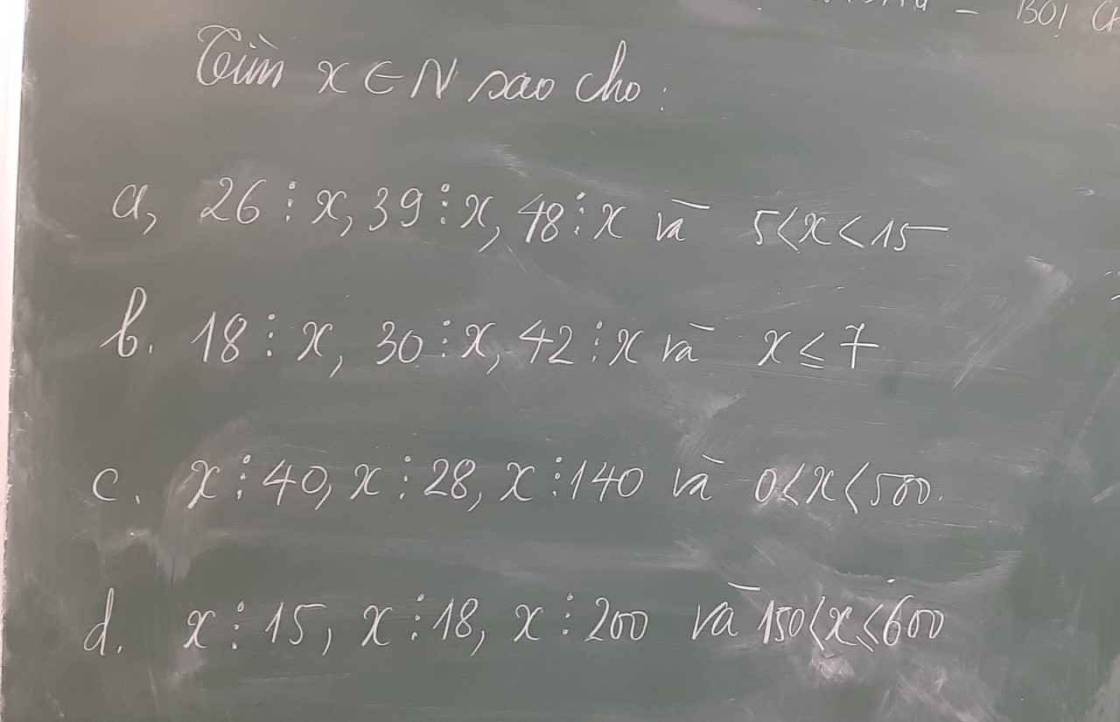 BỘI
Tìm x ∈ N sao cho:
a, 26 ⋮ x, 39 ⋮ x, 48 ⋮ x và 5 < x < 15
b. 18 ⋮ x, 30 ⋮ x, 42 ⋮ x và x ≤ 7
c. x ⋮ 40, x ⋮ 28, x ⋮ 140 và 0 < x < 500.
d. x ⋮ 15, x ⋮ 18, x ⋮ 200 và 150 < x < 600